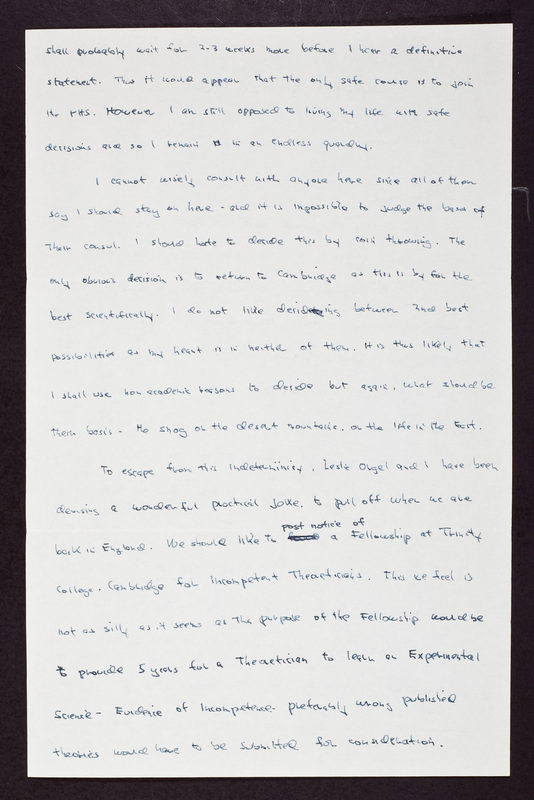 shall probably wait for 2-3 weeks more before I hear a definitive
statement. Thus it would appear that the only safe course is to join
the PHS. However I am still opposed to living my life with safe
decisions and so I remain in an endless quandry.
I cannot wisely consult with anyone here since all of them
say I should stay on here - and it is impossible to judge the basis of
their consul. I should hate to decide this by coin throwing. The
only obvious decision is to return to Cambridge as this is by far the
best scientifically. I do not like deciding between 2nd best
possibilities as my heart is in neither of them. It is thus likely that
I shall use non academic reasons to decide but again, what should be
their basis - the smog or the desert mountains, or the life in the East.
To escape from this indeterminicy, Leslie Orgel and I have been
devising a wonderful practical joke, to pull off when we are
back in England. We should like to post notice of a Fellowship at Trinity
College, Cambridge for Incompetent Theoreticians. This we feel is
not as silly as it seems as the purpose of the Fellowship would be
to provide 5 years for a Theoretician to learn an Experimental
Science - Evidence of Incompetence - preferably wrong published
theories would have to be submitted for consideration.